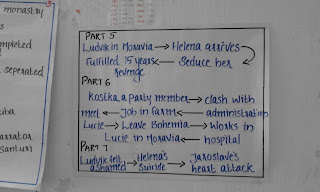 monastry
mpleted
seperated
uba
arrator
Santuri
PART 5
Ludvik in Moravia → Helena arrives
Fulfilled 15 years ← Seduce her
revenge
PART 6
Kostka a party member → clash with
meet ← Job in farm ← administration
Lucie → Leave Bohemia → Works in
Lucie in Moravia ← hospital
PART 7
Ludvik felt → Helena's → Jaroslave's
ashamed suicide heart attack.